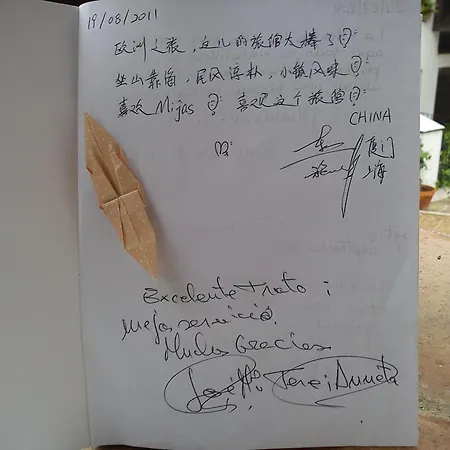 19/08/2011
欧洲之旅，这儿的旅馆太棒了
坐山靠海，民风淳朴，小镇风味
喜欢 Mijas 喜欢这个旅馆
CHINA
厦门
上海
Excelente trato i
mejor servicio,
Muchas Gracias
José Tere i